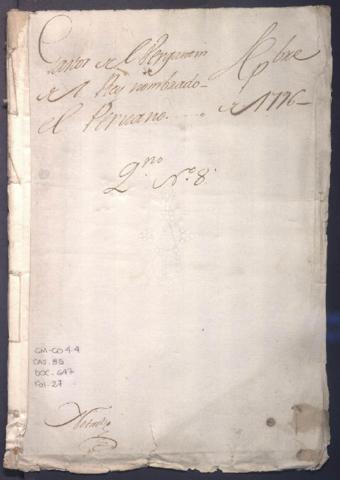 Gastos de el Bergantin
de S. M. nombrado
el Peruano.
Sbre
de 1796
Qno No. 8.
GM-CO 4.4
CAJ. 85
DOC. 647
FOL. 27